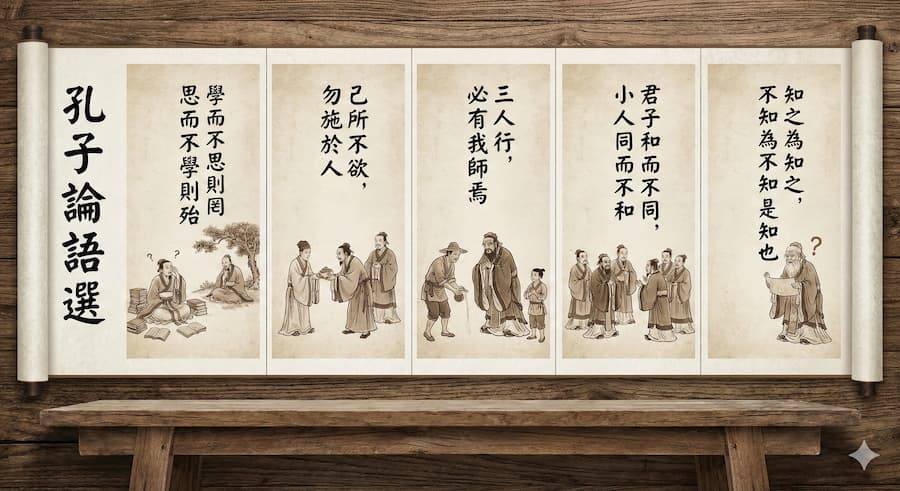 孔子論語選
學而不思則罔
思而不學則殆
己所不欲，
勿施於人
三人行，
必有我師焉
君子和而不同，
小人同而不和
知之為知之，
不知為不知是知也